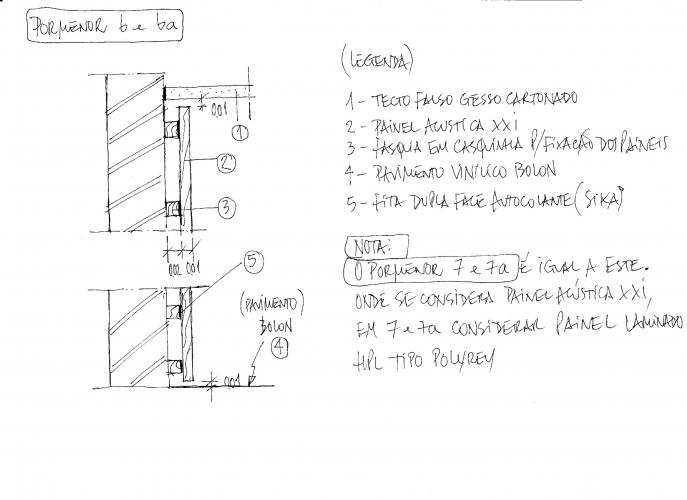 PORMENOR 6 e 6a
(LEGENDA)
1 - TECTO FALSO GESSO CARTONADO
2 - PAINEL ACUSTICA XXI
3 - FASQUIA EM CASQUINHA P/FIXAÇÃO DOS PAINEIS
4 - PAVIMENTO VINILICO BOLON
5 - FITA DUPLA FACE AUTOCOLANTE (SIKA)
NOTA:
O PORMENOR 7 e 7a É IGUAL A ESTE.
ONDE SE CONSIDERA PAINEL ACÚSTICA XXI,
EM 7 e 7a CONSIDERAR PAINEL LAMINADO
HPL TIPO POLYREY
001
1
2
3
002 001
5
(PAVIMENTO)
BOLON
4
001